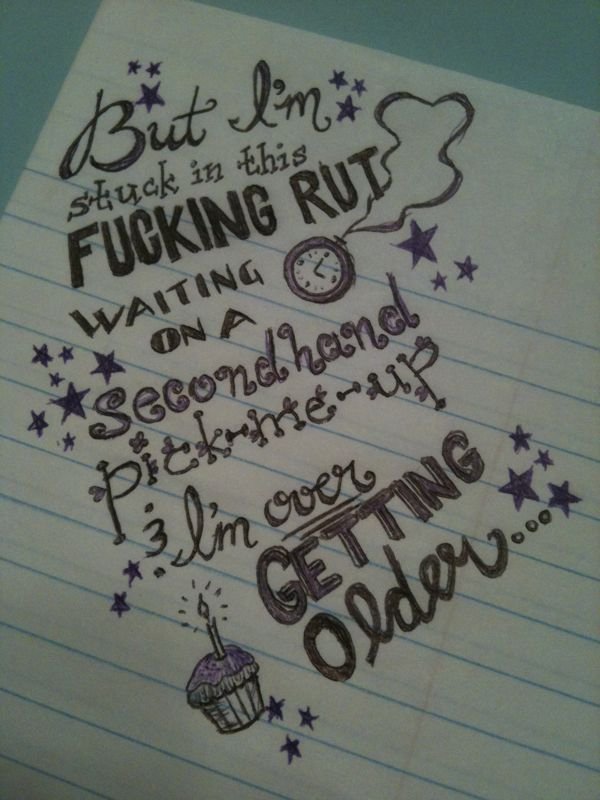 But I'm
stuck in this
FUCKING RUT
WAITING
ON A
secondhand
pick-me-up
& I'm over
GETTING
older...